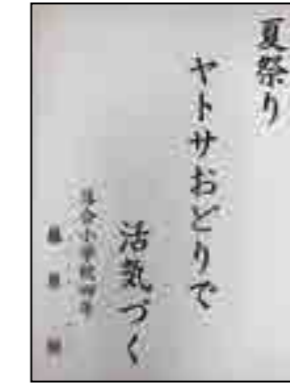 夏祭り
ヤトサおどりで
活気づく
落合小学校四年